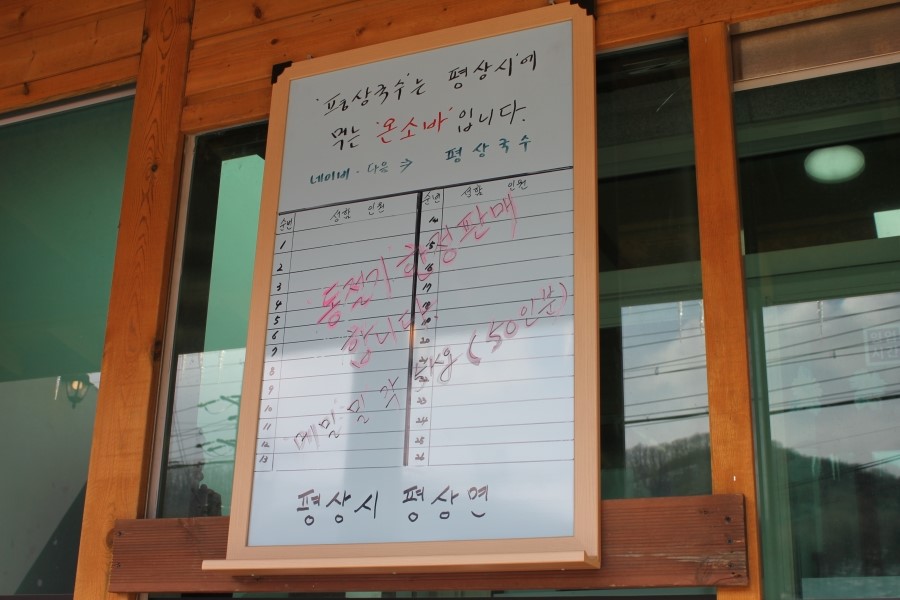 '평상국수'는 평상시에
먹는 '온소바' 입니다.
네이버·다음 ⇒ 평상국수
순번 성함 인원 순번 성함 인원
1 14
2 15
3 16
4 17
5 18
6 19
7 20
8
9
10 23
11 24
12 25
13 26
동절기 한정판매
합니다.
메밀·밀 각 5kg (50인분)
평상시 평상연